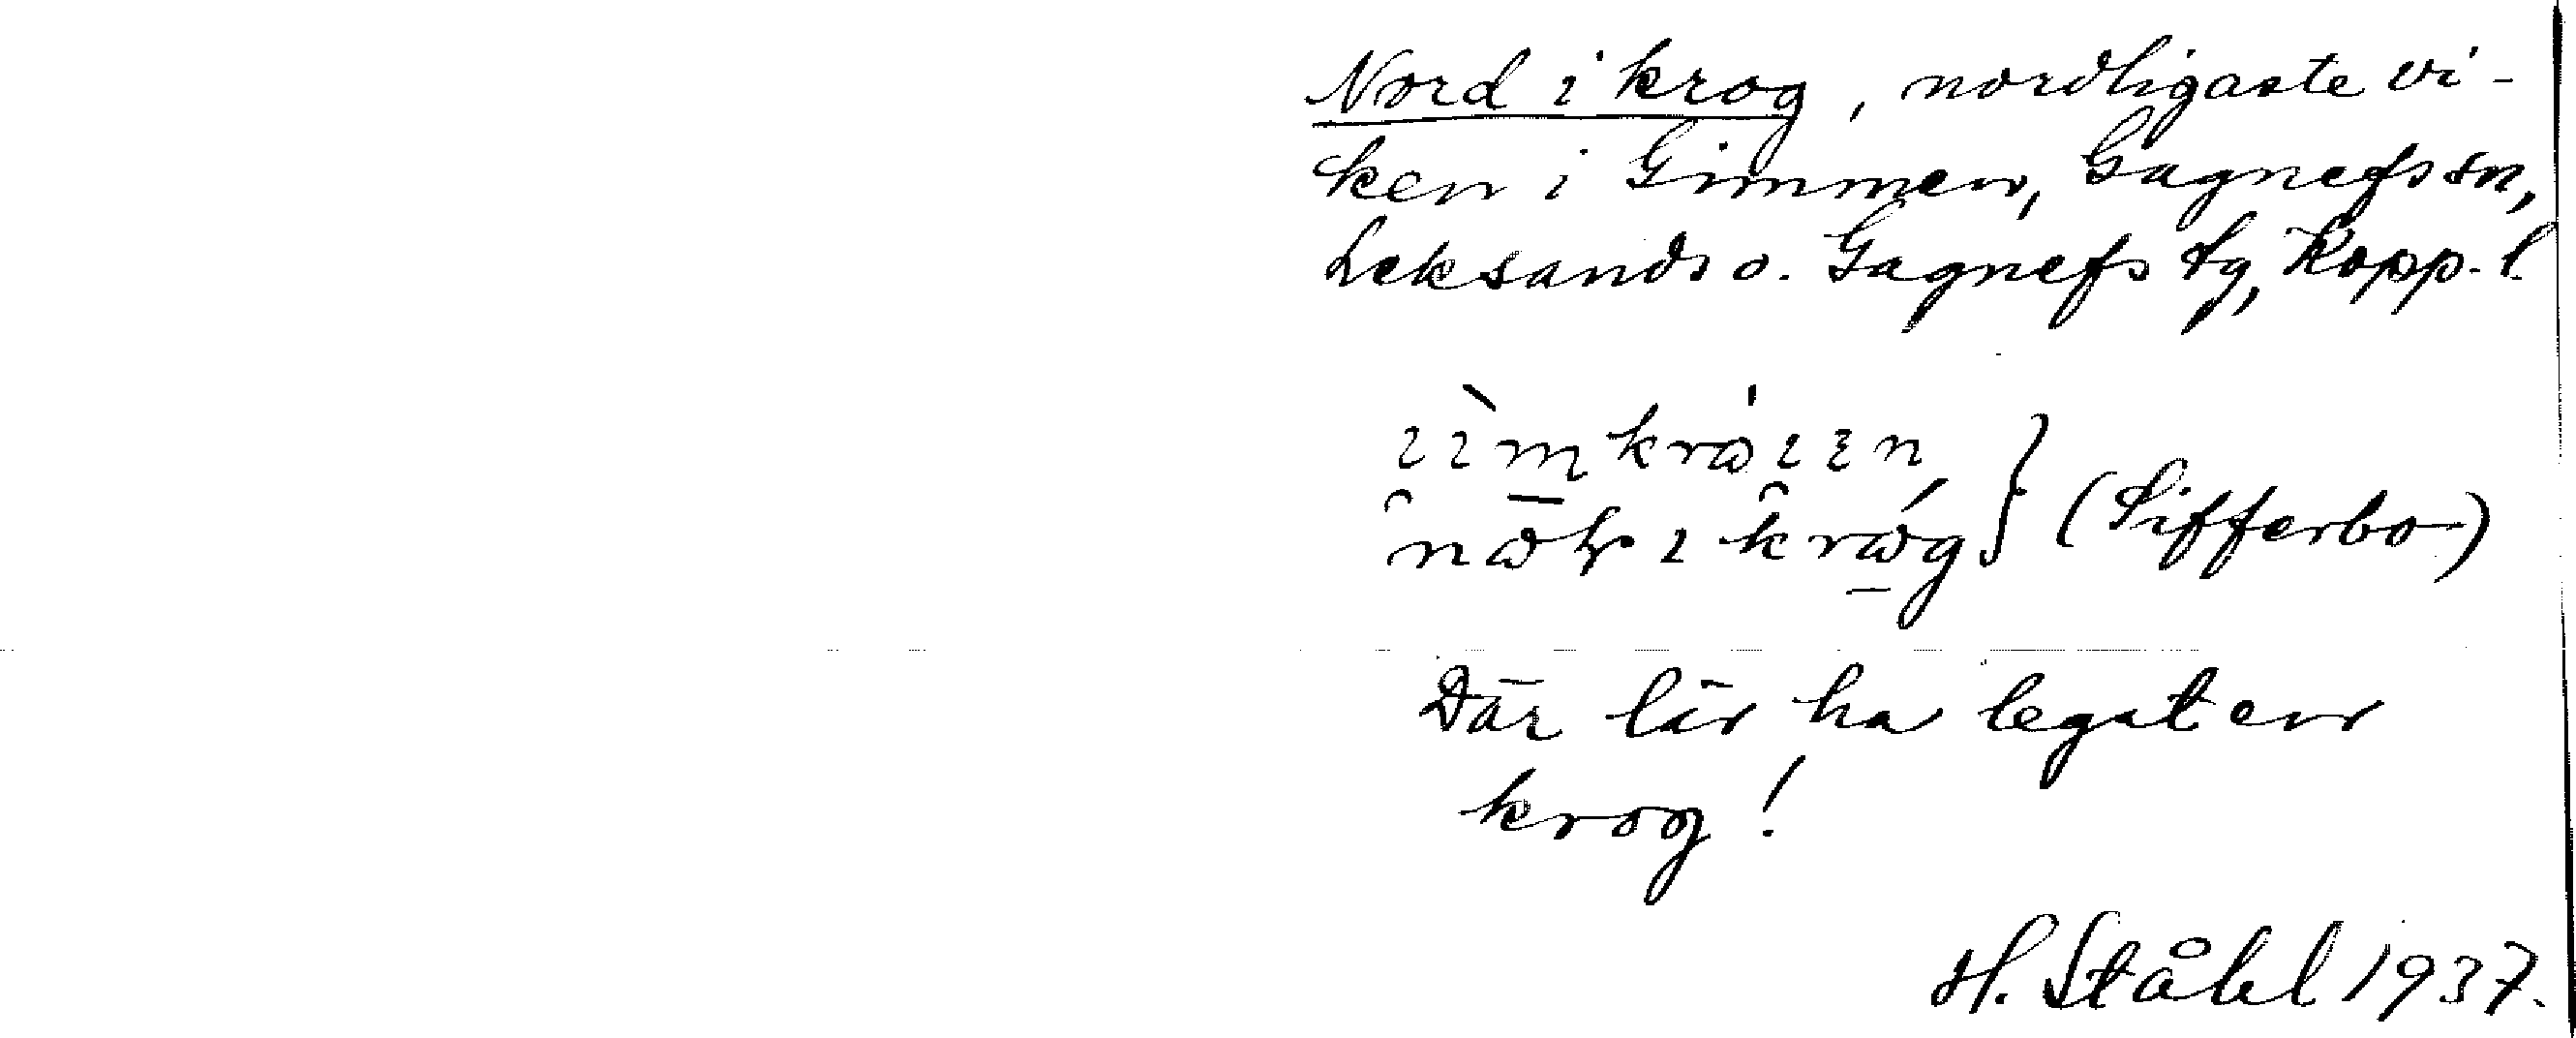 Nord i krog, nordligaste vi-
ken i Gimmen, Gagnefs sn,
Leksands o. Gagnefs tg, Kopp. l.
(Sifferbo)
Där lär ha legat en
krog!
H. Ståhl 1937.